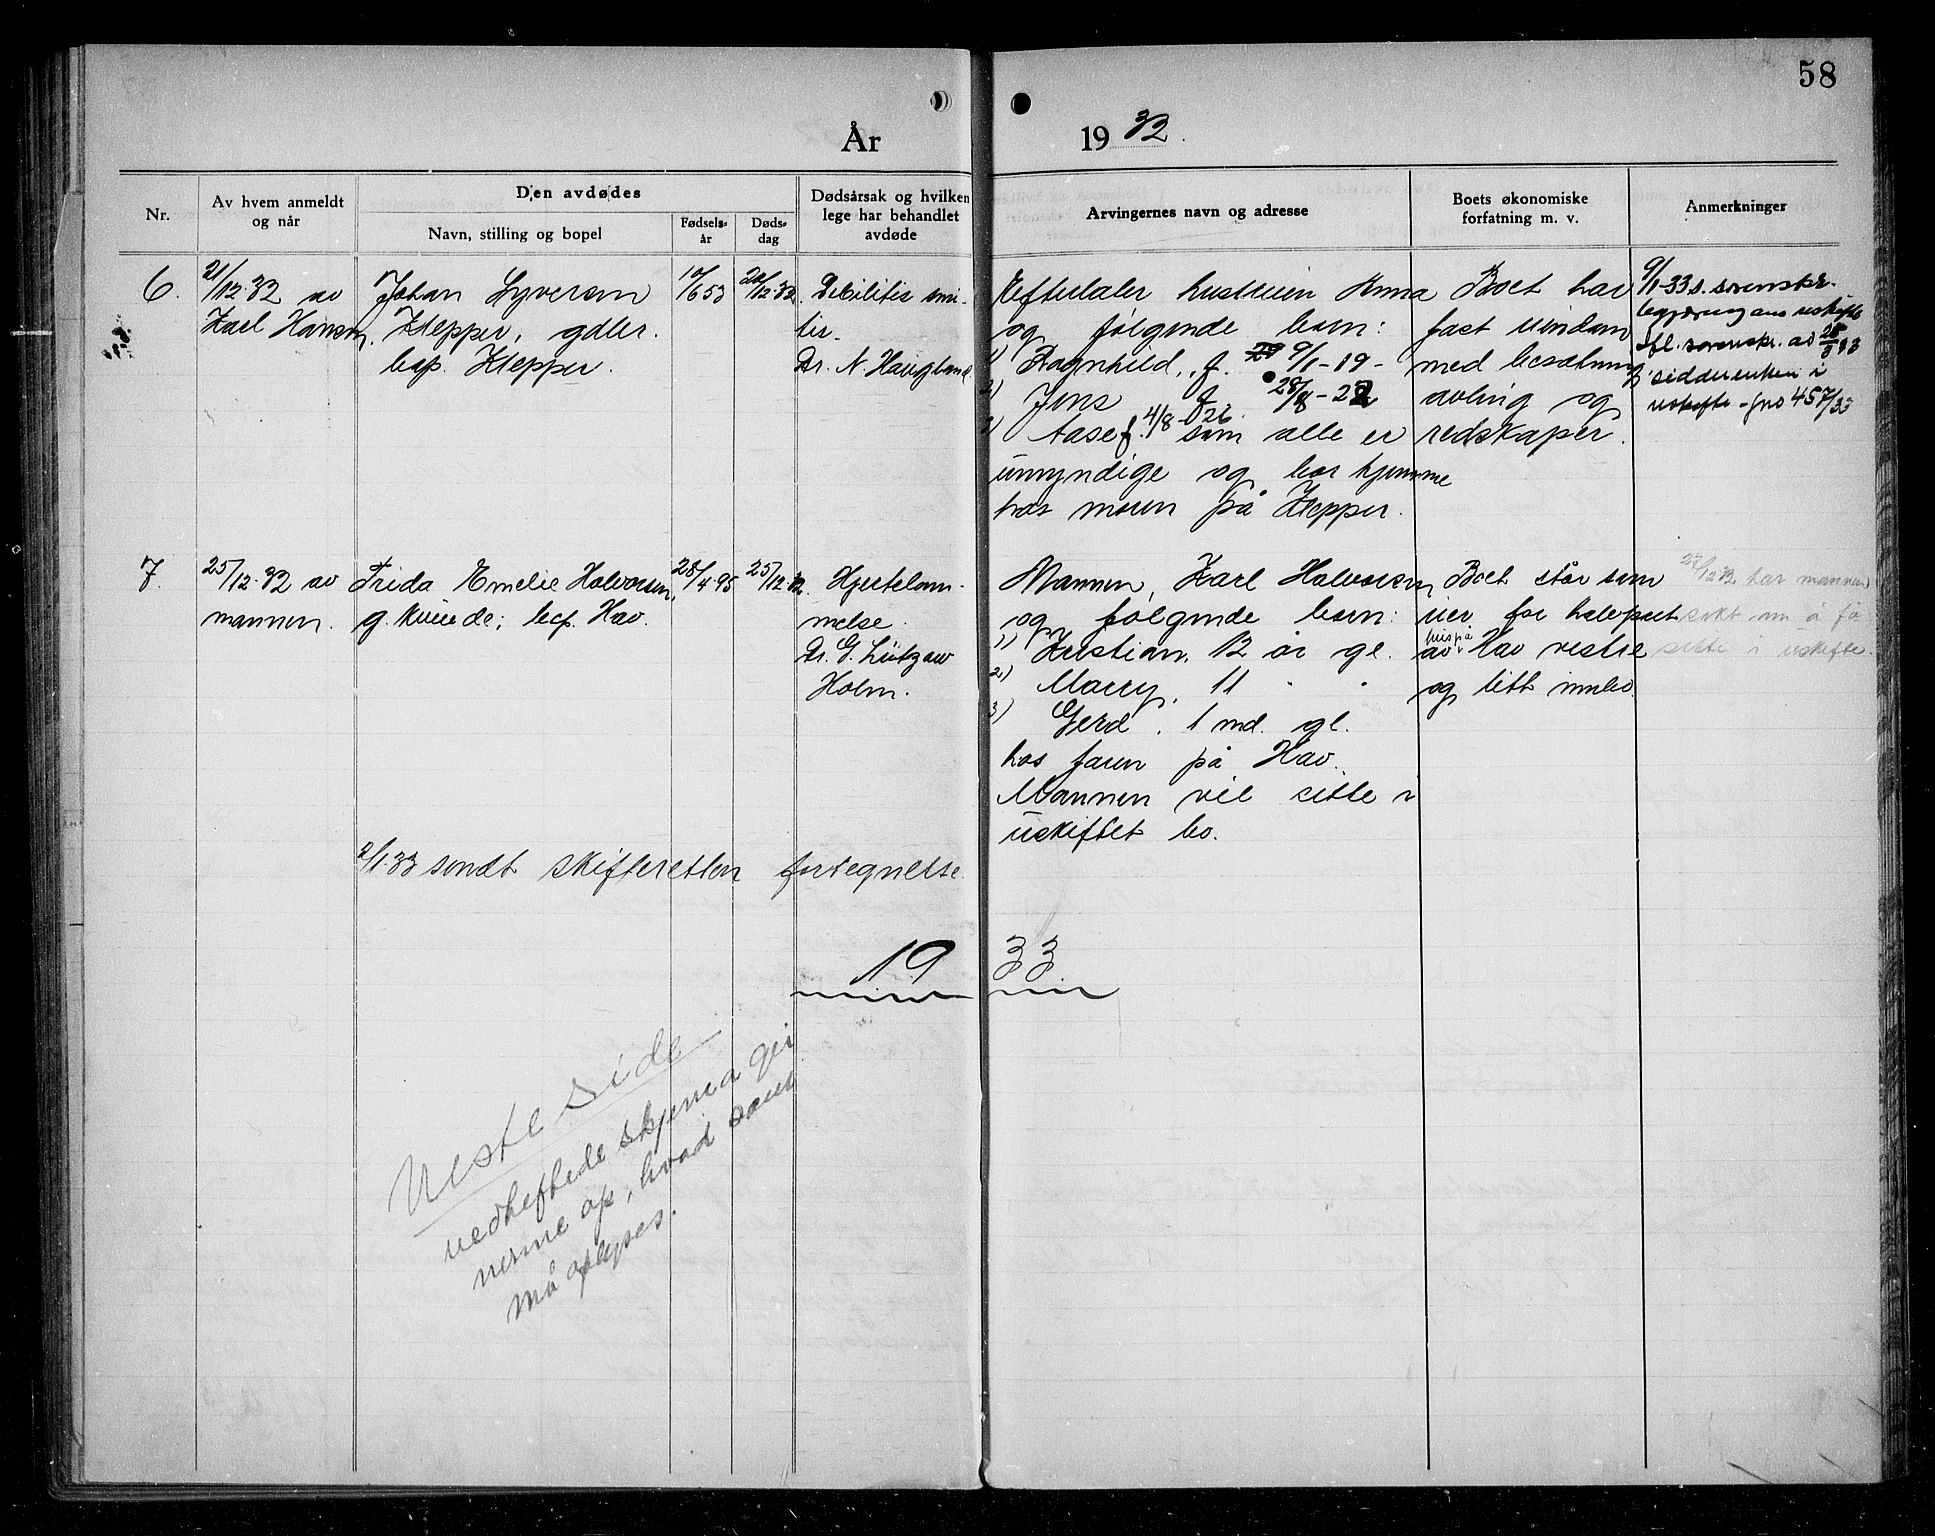 58
År 1932.
Nr.
Av hvem anmeldt
og når
Den avdødes
Navn, stilling og bopel
Fødsels-
år
Døds-
dag
Dødsårsak og hvilken
lege har behandlet
avdøde
Arvingernes navn og adresse
Boets økonomiske
forfatning m. v.
Anmerkninger
6.
21/12-32 av
Karl Hansen.
Johan Syversen
Klepper, gdbr.
bop. Klepper.
10/6 53
20/12-32.
Debilitis sini-
tis.
Dr. N. Haugland
Efterlater hustruen Anna
og følgende barn:
1) Ragnhild, f. 9/1-19-
2) Jens f. 28/8-22
3) Aase f. 4/8-26 som alle er
umyndige og bor hjemme
hos moren på Klepper.
Boet har
fast eiendom
med besetning
avling og
redskaper.
9/1-33 s. sorenskr.
begjæring om uskifte
ifl. sorenskr. av 25/3 33
sidder enken i
uskifte - jno 457/33
7.
25/12-32 av
mannen.
Frida Emelie Halvorsen,
g. kvinde; bop. Hav.
28/4-95
25/12-32.
Hjertelam-
melse.
Dr. G. Lützow
Holm.
Mannen, Karl Halvorsen
og følgende barn:
1) Kristian, 12 år gl.
2) Marry, 11 " "
3) Gerd, 1 md. gl.
hos faren på Hav.
Mannen vil sitte i
uskiftet bo.
Boet står som
eier for halvpart
av hus på Hav vestre
og litt innbo.
27/12 32 har mannen
søkt om å få
sitte i uskifte.
2/1-33 sendt skifteretten fortegnelse.
1933
Neste side
vedheftede skjema gir
nerme op, hvad som
må oplyses.